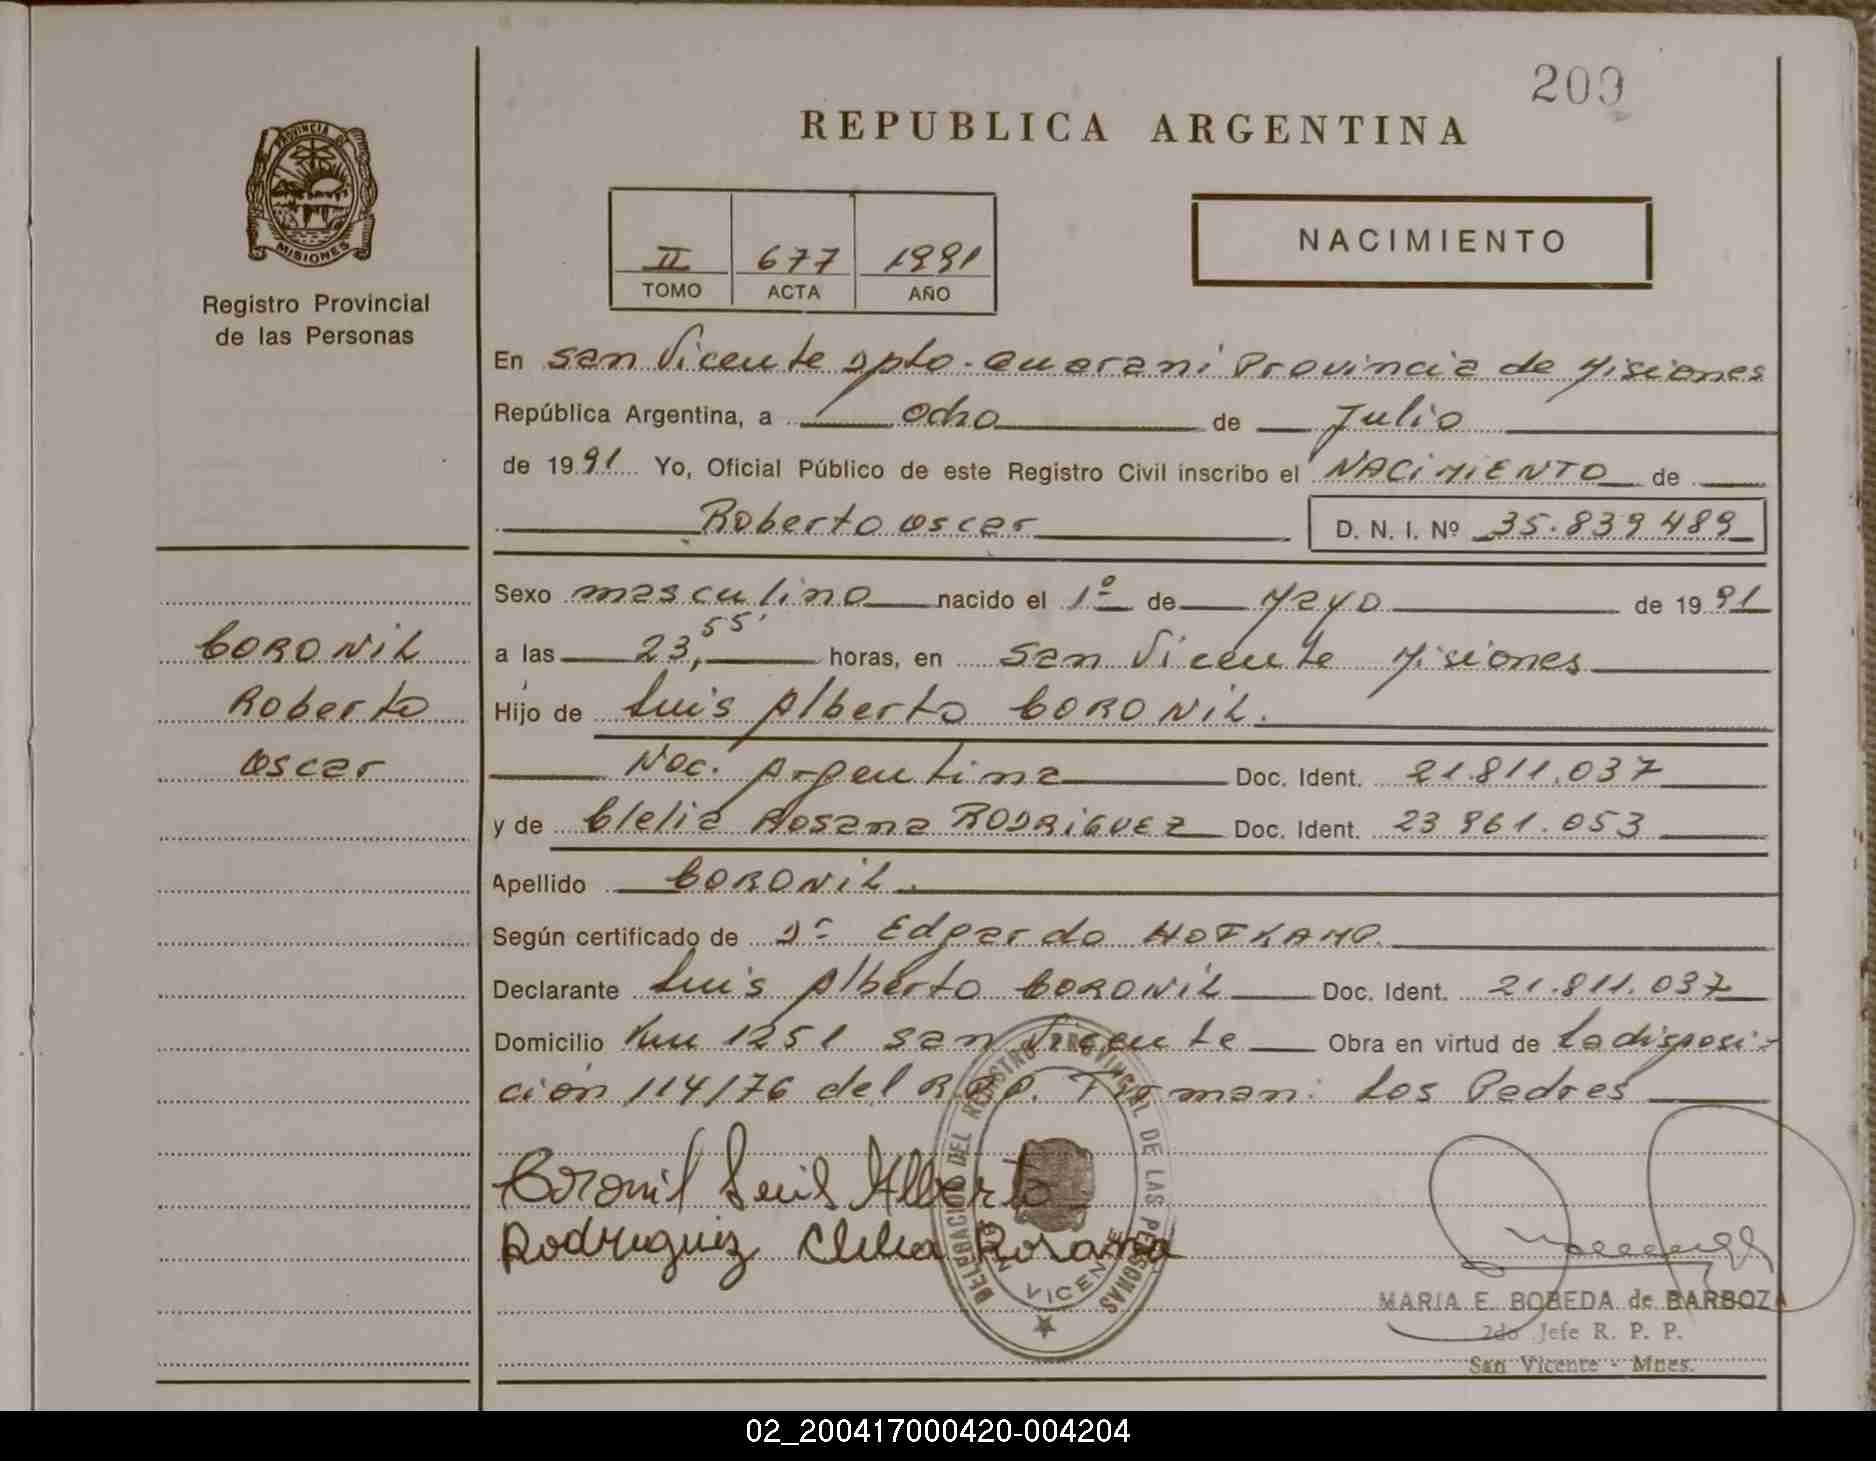 209
REPUBLICA ARGENTINA
PROVINCIA DE
MISIONES
Registro Provincial
de las Personas
II 677 1991
TOMO ACTA AÑO
NACIMIENTO
En San Vicente Dpto. Guarani Provincia de Misiones
República Argentina, a ocho de Julio
de 1991 Yo, Oficial Público de este Registro Civil inscribo el NACIMIENTO de
Roberto Oscar D. N. I. Nº 35.839489
Sexo masculino nacido el 1º de Mayo de 1991
a las 23,55' horas, en San Vicente Misiones
Hijo de Luis Alberto CORONIL.
Nac. Argentina Doc. Ident. 21.811.037
y de Clelia Rosana RODRIGUEZ Doc. Ident. 23 861.053
Apellido CORONIL.
Según certificado de Dr Edgardo
Declarante Luis Alberto CORONIL Doc. Ident. 21.811.037
Domicilio Km 1251 San Vicente Obra en virtud de La disposi-
ción 114/76 del R.P.P. Firman: Los Padres
CORONIL
Roberto
Oscar
Coronil Luis Alberto
Rodriguez Clelia Rosana
DELEGACION DEL REGISTRO PROVINCIAL DE LAS PERSONAS
VICENTE
MARIA E. BOBEDA de BARBOZA
2do Jefe R. P. P.
San Vicente - Mnes.
02_200417000420-004204